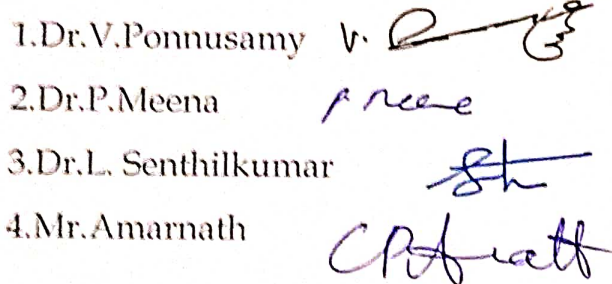 1.Dr.V.Ponnusamy V.
2.Dr.P.Meena
3.Dr.L. Senthilkumar
4.Mr.Amarnath